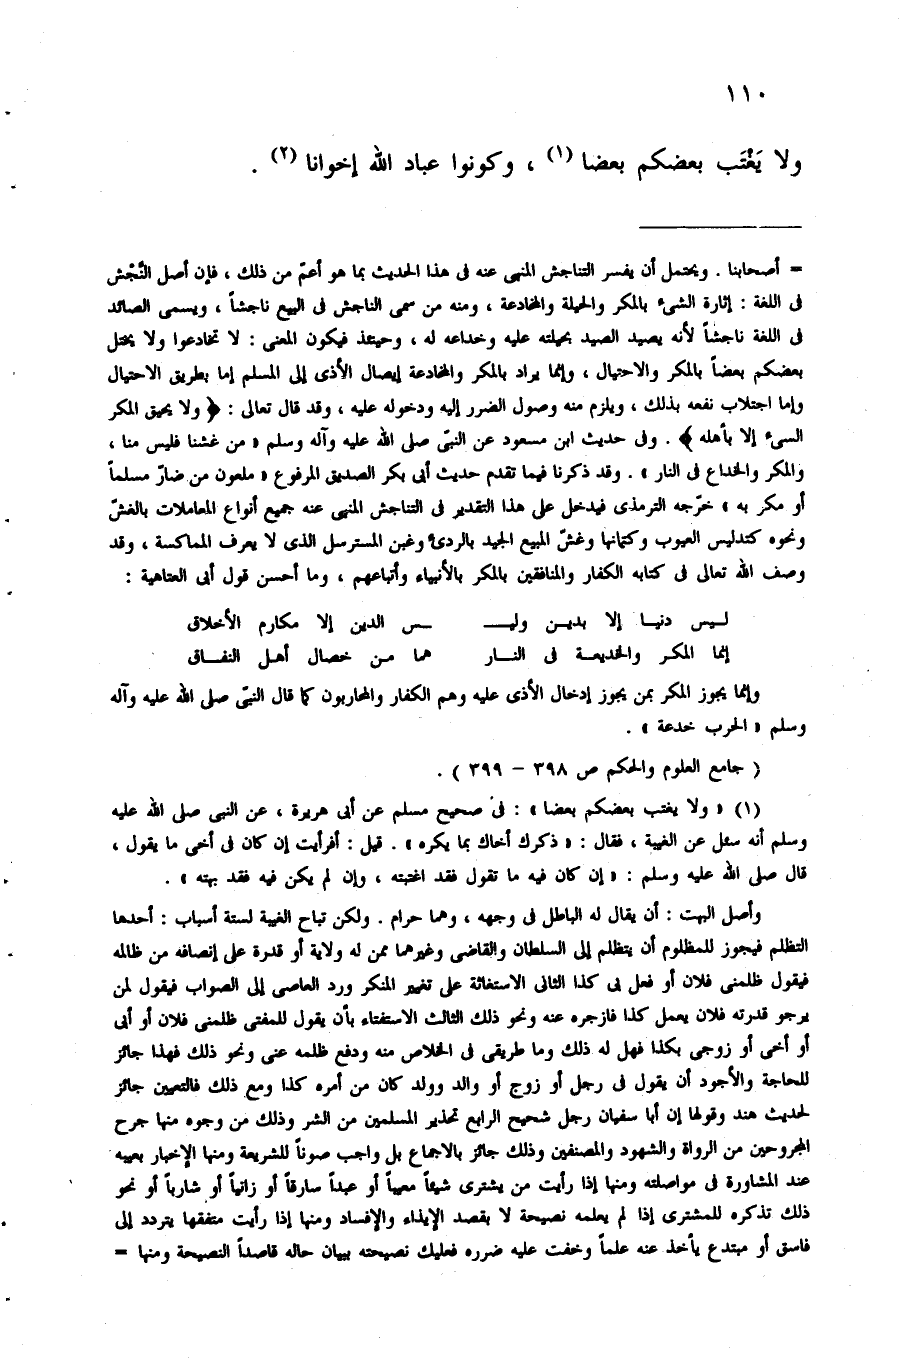 ١١٠
ولا يَغْتَب بعضكم بعضا (١) ، وكونوا عباد الله إخوانا (٢) .
= أصحابنا . ويحتمل أن يفسر التناجش المنهى عنه فى هذا الحديث بما هو أعمّ من ذلك ، فإن أصل النَّجْش
فى اللغة : إثارة الشىء بالمكر والحيلة والمخادعة ، ومنه من سمى الناجش فى البيع ناجشاً ، ويسمى الصائد
فى اللغة ناجشاً لأنه يصيد الصيد بحيلته عليه وخداعه له ، وحينئذ فيكون المعنى : لا تخادعوا ولا يختل
بعضكم بعضاً بالمكر والاحتيال ، وإنما يراد بالمكر والمخادعة إيصال الأذى إلى المسلم إما بطريق الاحتيال
وإما اجتلاب نفعه بذلك ، ويلزم منه وصول الضرر إليه ودخوله عليه ، وقد قال تعالى : ﴿ ولا يحيق المكر
السىء إلا بأهله ﴾ . وفى حديث ابن مسعود عن النبىّ صلى الله عليه وآله وسلم « من غشنا فليس منا ،
والمكر والخداع فى النار » . وقد ذكرنا فيما تقدم حديث أبى بكر الصديق المرفوع « ملعون من ضارّ مسلماً
أو مكر به » خرّجه الترمذى فيدخل على هذا التقدير فى التناجش المنهى عنه جميع أنواع المعاملات بالغشّ
ونحوه كتدليس العيوب وكتمانها وغشّ المبيع الجيد بالردىء وغبن المسترسل الذى لا يعرف المماكسة ، وقد
وصف الله تعالى فى كتابه الكفار والمنافقين بالمكر بالأنبياء وأتباعهم ، وما أحسن قول أبى العتاهية :
لـيس دنيـا إلا بديـن وليـــ ـــس الدين إلا مكارم الأخلاق
إنما المكـر والخديعـة فى النـار هما مـن خصال أهـل النفـاق
وإنما يجوز المكر بمن يجوز إدخال الأذى عليه وهم الكفار والمحاربون كما قال النبىّ صلى الله عليه وآله
وسلم « الحرب خدعة » .
( جامع العلوم والحكم ص ٣٩٨ – ٣٩٩ ) .
(١) « ولا يغتب بعضكم بعضا » : فى صحيح مسلم عن أبى هريرة ، عن النبى صلى الله عليه
وسلم أنه سئل عن الغيبة ، فقال : « ذكرك أخاك بما يكره » . قيل : أفرأيت إن كان فى أخى ما يقول ،
قال صلى الله عليه وسلم : « إن كان فيه ما تقول فقد اغتبته ، وإن لم يكن فيه فقد بهته » .
وأصل البهت : أن يقال له الباطل فى وجهه ، وهما حرام . ولكن تباح الغيبة لستة أسباب : أحدها
التظلم فيجوز للمظلوم أن يتظلم إلى السلطان والقاضى وغيرهما ممن له ولاية أو قدرة على إنصافه من ظالمه
فيقول ظلمنى فلان أو فعل بى كذا الثانى الاستغاثة على تغيير المنكر ورد العاصى إلى الصواب فيقول لمن
يرجو قدرته فلان يعمل كذا فازجره عنه ونحو ذلك الثالث الاستفتاء بأن يقول للمفتى ظلمنى فلان أو أبى
أو أخى أو زوجى بكذا فهل له ذلك وما طريقى فى الخلاص منه ودفع ظلمه عنى ونحو ذلك فهذا جائز
للحاجة والأجود أن يقول فى رجل أو زوج أو والد وولد كان من أمره كذا ومع ذلك فالتعيين جائز
لحديث هند وقولها إن أبا سفيان رجل شحيح الرابع تحذير المسلمين من الشر وذلك من وجوه منها جرح
المجروحين من الرواة والشهود والمصنفين وذلك جائز بالاجماع بل واجب صوناً للشريعة ومنها الإخبار بعيبه
عند المشاورة فى مواصلته ومنها إذا رأيت من يشترى شيئاً معيباً أو عبداً سارقاً أو زانياً أو شارباً أو نحو
ذلك تذكره للمشترى إذا لم يعلمه نصيحة لا بقصد الإيذاء والإفساد ومنها إذا رأيت متفقها يتردد إلى
فاسق أو مبتدع يأخذ عنه علماً وخفت عليه ضرره فعليك نصيحته ببيان حاله قاصداً النصيحة ومنها =